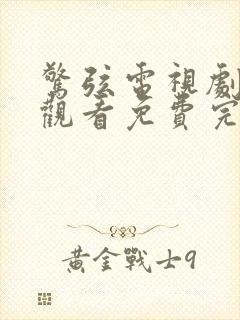 驚弦電視劇
觀看免費完
黃金戰士9